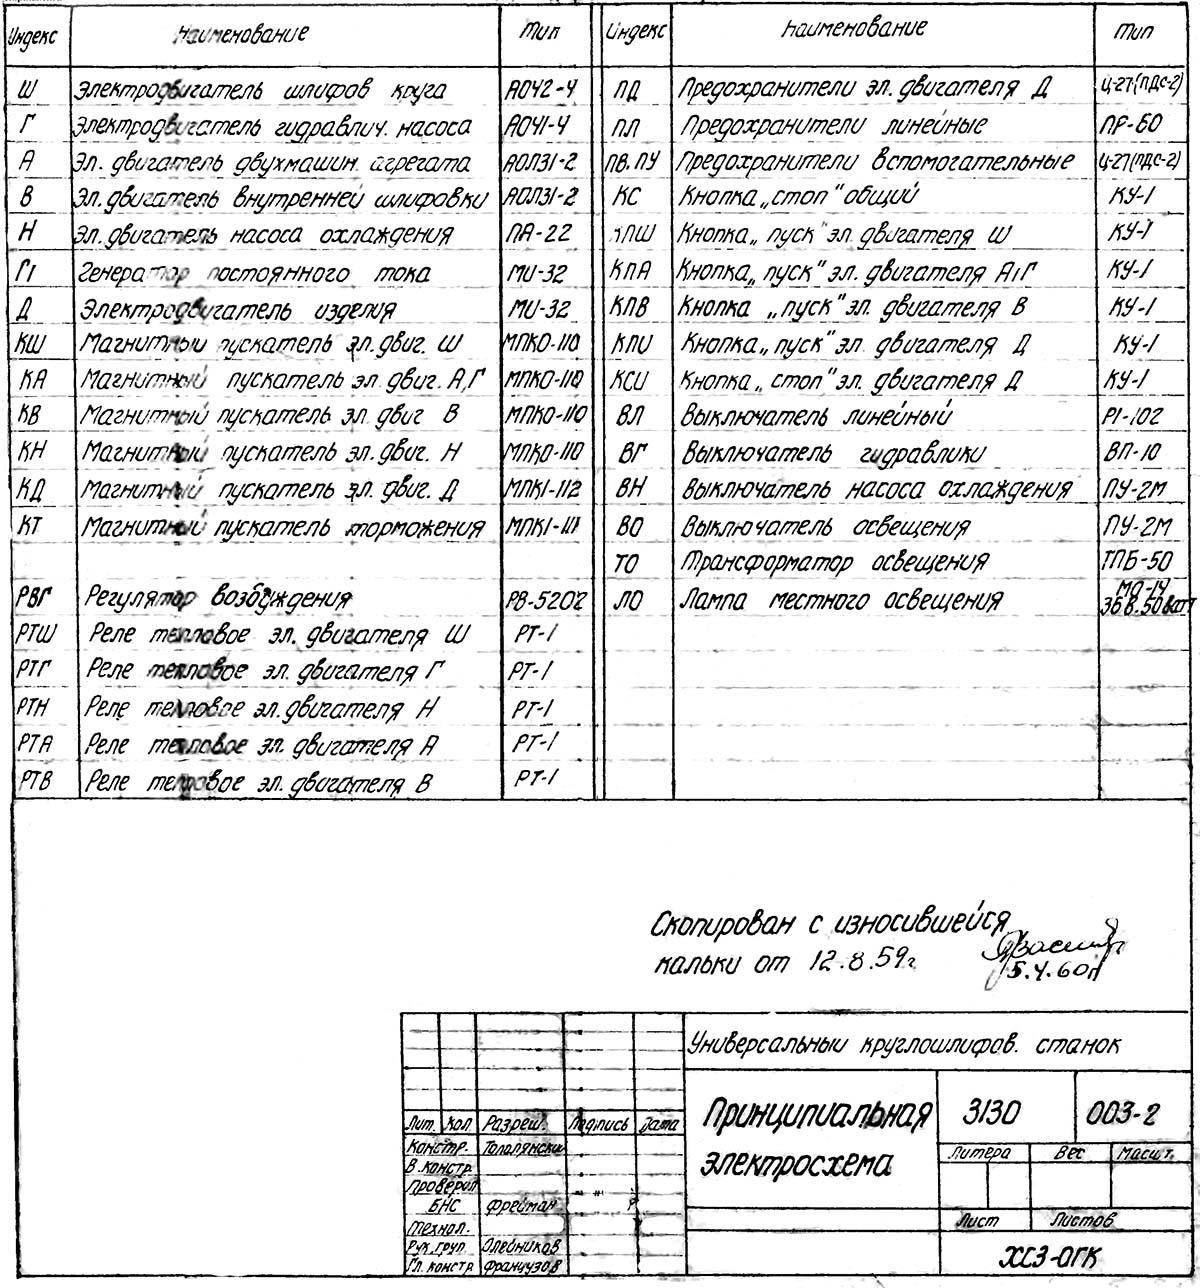 Индекс Наименование Тип Индекс Наименование Тип
Ш Электродвигатель шлифов круга АО42-4 ПД Предохранители эл. двигателя Д Ц-27(ПДС-2)
Г Электродвигатель гидравлич. насоса АО41-4 ПЛ Предохранители линейные ПР-60
А Эл. двигатель двухмашин агрегата АОЛ31-2 ПВ.ПУ Предохранители вспомогательные Ц-27(ПДС-2)
В Эл. двигатель внутренней шлифовки АОЛ31-2 КС Кнопка „стоп" общий КУ-1
Н Эл. двигатель насоса охлаждения ПА-22 КПШ Кнопка „пуск" эл двигателя Ш КУ-1
Г1 Генератор постоянного тока МИ-32 КПА Кнопка „пуск" эл. двигателя А,Г КУ-1
Д Электродвигатель изделия МИ-32 КПВ Кнопка „пуск" эл. двигателя В КУ-1
КШ Магнитный пускатель эл. двиг. Ш МПКО-110 КПИ Кнопка „пуск" эл двигателя Д КУ-1
КА Магнитный пускатель эл. двиг. А,Г МПКО-110 КСИ Кнопка „стоп" эл. двигателя Д КУ-1
КВ Магнитный пускатель эл. двиг В МПКО-110 ВЛ Выключатель линейный Р1-102
КН Магнитный пускатель эл. двиг. Н МПКО-110 ВГ Выключатель гидравлики ВП-10
КД Магнитный пускатель эл. двиг. Д МПК1-112 ВН Выключатель насоса охлаждения ПУ-2М
КТ Магнитный пускатель торможения МПК1-111 ВО Выключатель освещения ПУ-2М
ТО Трансформатор освещения ТПБ-50
РВГ Регулятор возбуждения РВ-5202 ЛО Лампа местного освещения МО-14 36в.50ватт
РТШ Реле тепловое эл. двигателя Ш РТ-1
РТГ Реле тепловое эл. двигателя Г РТ-1
РТН Реле тепловое эл. двигателя Н РТ-1
РТА Реле тепловое эл. двигателя А РТ-1
РТВ Реле тепловое эл. двигателя В РТ-1
Скопирован с износившейся
кальки от 12.8.59г.
Универсальный круглошлифов. станок
Принципиальная 3130 003-2
электросхема
Литера Вес Масшт.
Лист Листов
ХСЗ-ОГК
Лит. Кол Разреш. Подпись Дата
Констр.
В констр.
Проверил
БНС Фрейман
Технол.
Рук. груп Олейников
Гл. констр Французов